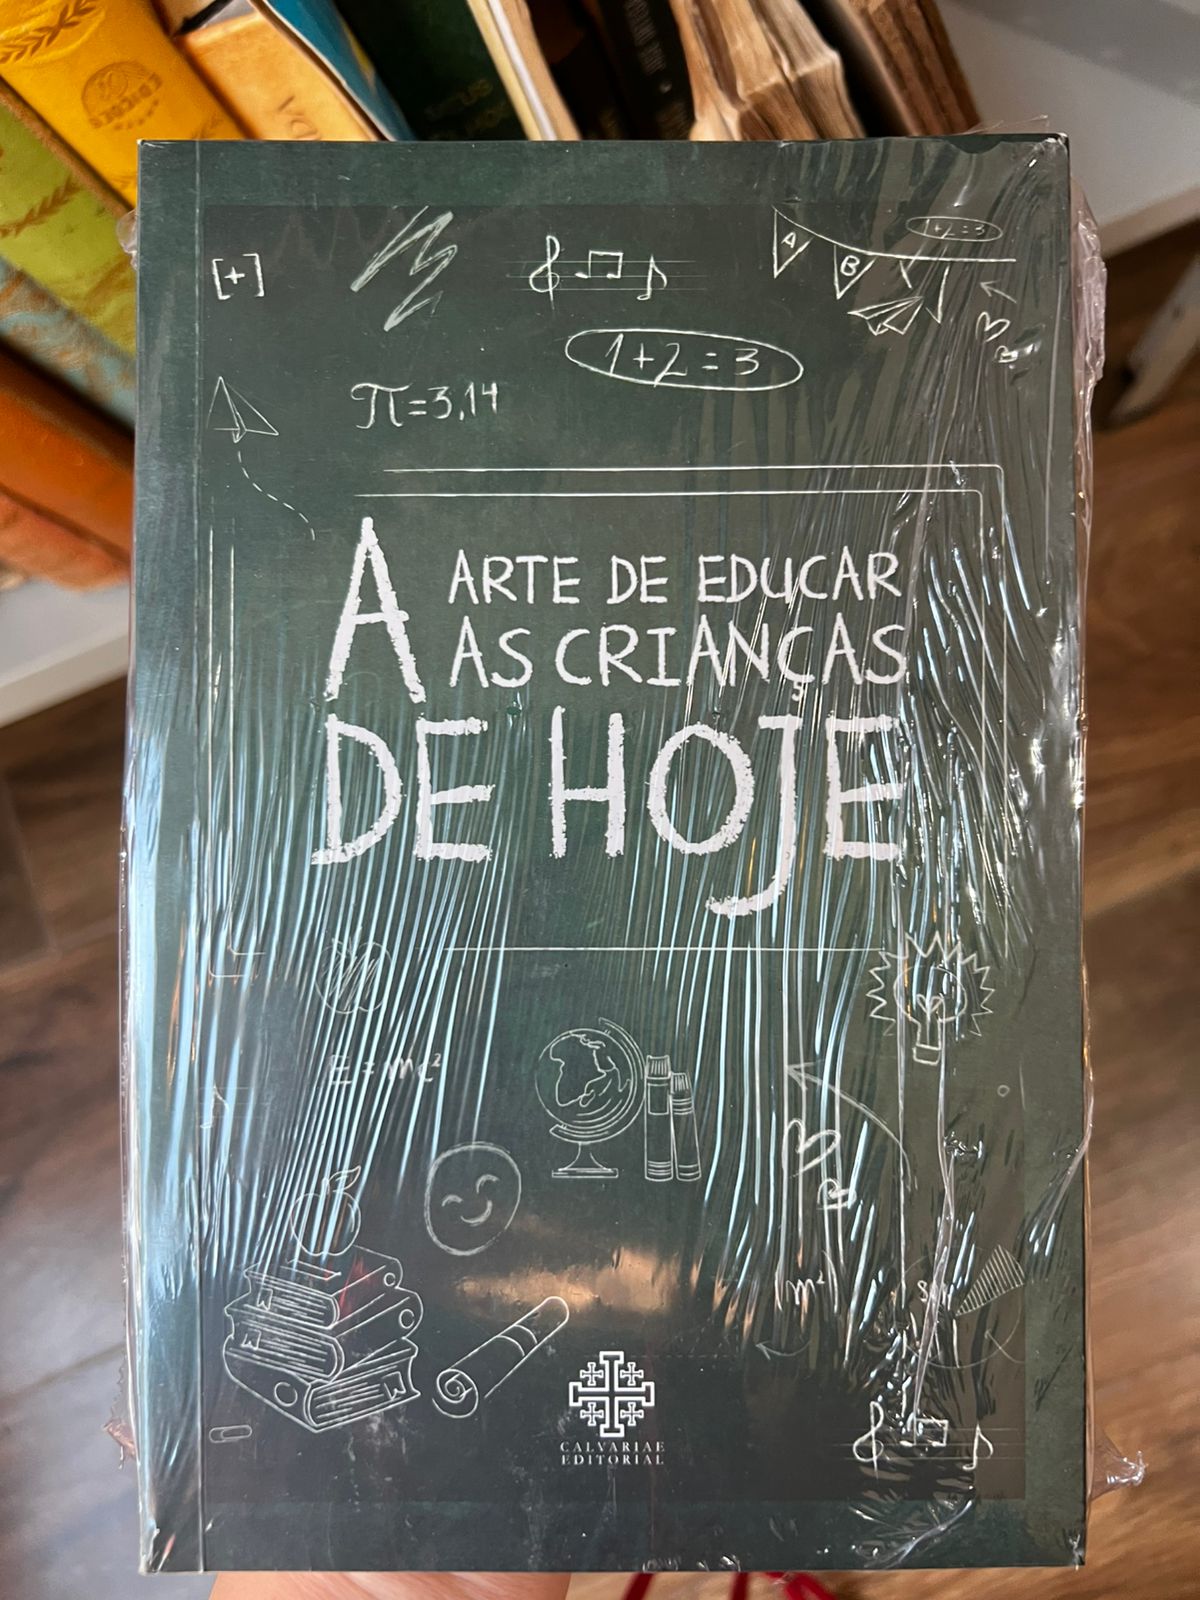 EDIÇÕES
[+]
A
B
1+2=3
1+2=3
π=3,14
A ARTE DE EDUCAR
AS CRIANÇAS
DE HOJE
E=mc²
m²
CALVARIAE
EDITORIAL